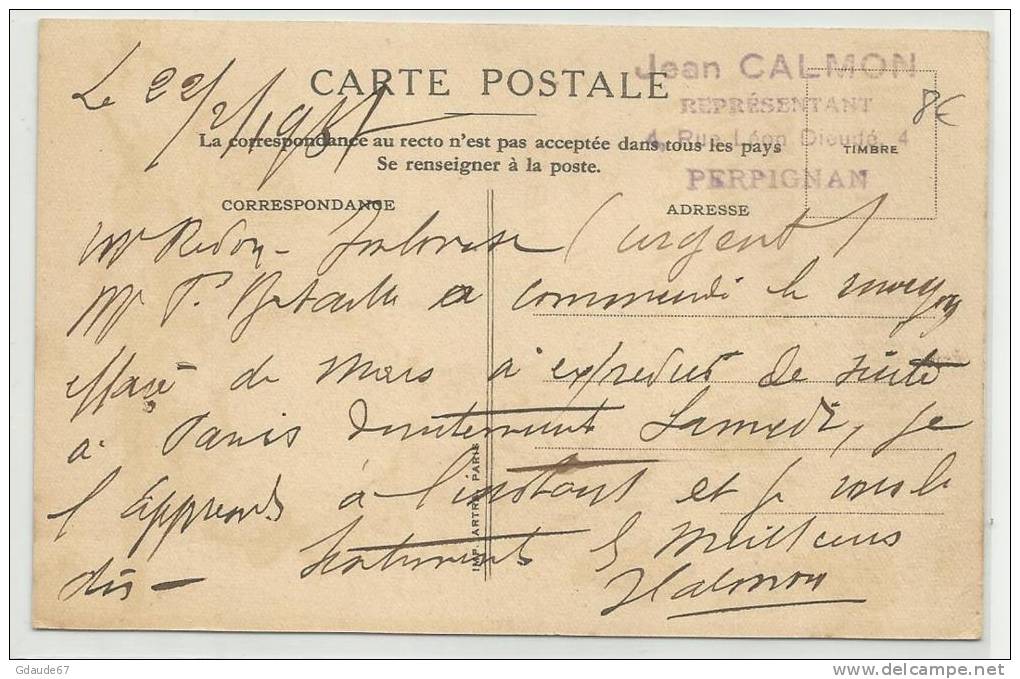 Le 22/2/193
CARTE POSTALE
Jean CALMON
REPRÉSENTANT
4, Rue Léon Dieudé, 4
PERPIGNAN
8€
TIMBRE
La correspondance au recto n'est pas acceptée dans tous les pays
Se renseigner à la poste.
CORRESPONDANCE
ADRESSE
Mr Redon - (urgent)
Mr P. Bataille a commandé le
de Mars à expédier de suite
à Paris directement Samedi, je
l'apprends à l'instant et je vous le
dis - les meilleurs
JCalmon
IMP. ARTRA PARIS
Gdaude67
www.delcampe.net